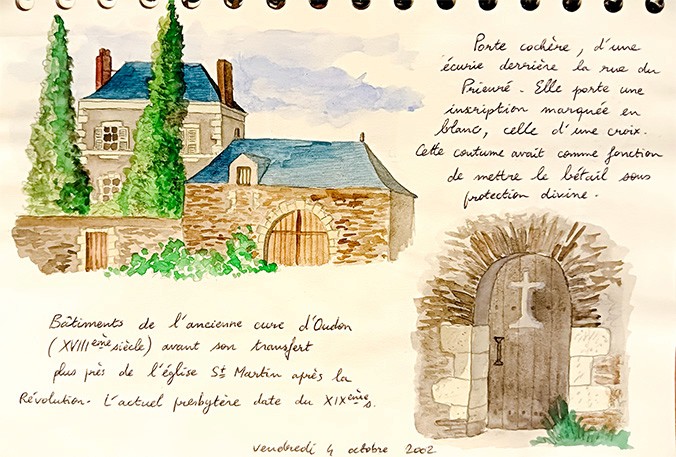 Porte cochère, d'une
écurie derrière la rue du
Prieuré. Elle porte une
inscription marquée en
blanc, celle d'une croix.
Cette coutume avait comme fonction
de mettre le bétail sous
protection divine.
Bâtiments de l'ancienne cure d'Oudon
(XVIIIème siècle) avant son transfert
plus près de l'église St Martin après la
Révolution. L'actuel presbytère date du XIXème s.
vendredi 4 octobre 2002